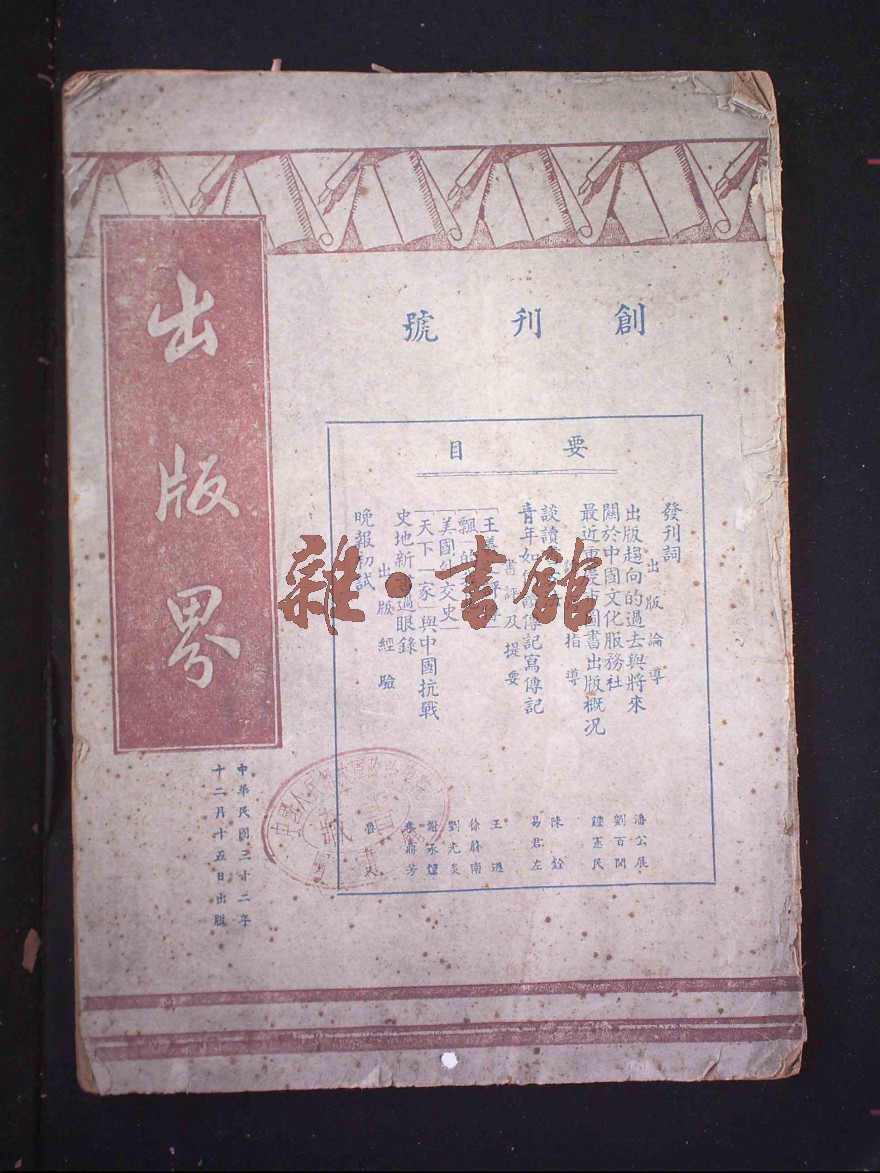 出版界
創刊號
要目
發刊詞
出版論導
出版趨向的過去與將來
關於中國文化服務社
最近重慶市圖書出版概况
指導
談讀
青年如 傳記寫傳記
書評及提要
「王
「飄 的
「美國外交史」
「天下一家」與中國抗戰
史地新書過眼錄
出版經驗
晚報初試
潘公展
劉百閔
鍾憲民
陳銓
易君左
王 遜
徐蔚南
劉光炎
謝承燻
中華民國三十二年
十二月十五日出版
中國人民
藏
雜·書館